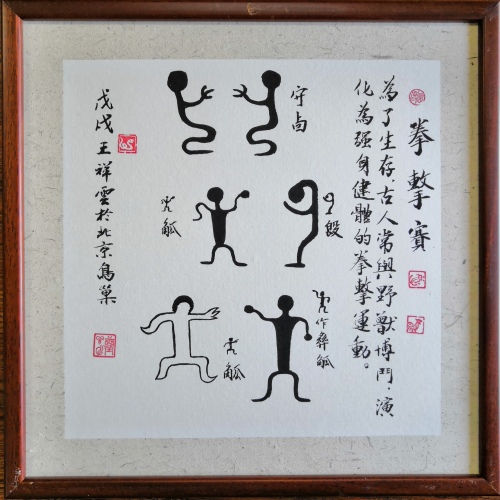 拳擊賽
為了生存,古人常與野獸博鬥,演
化為强身健體的拳擊運動。
守卣
觚
毀
觚
作彝觚
戊戌王祥雲於北京鳥巢